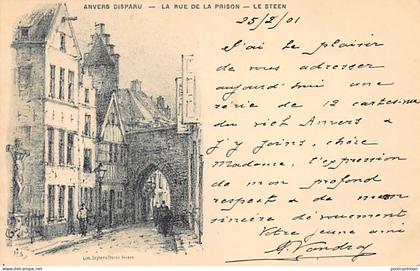 ANVERS DISPARU — LA RUE DE LA PRISON — LE STEEN
25/2/01
J'ai le plaisir
de vous adresser
aujourd'hui une
série de 12 cartes-vues
du vieil Anvers &
j'y joins, chère
Madame, l'expression
de mon profond
respect & de mon
sincère dévouement
Votre jeune ami
Lith. Seghers Frères Anvers
postcardman